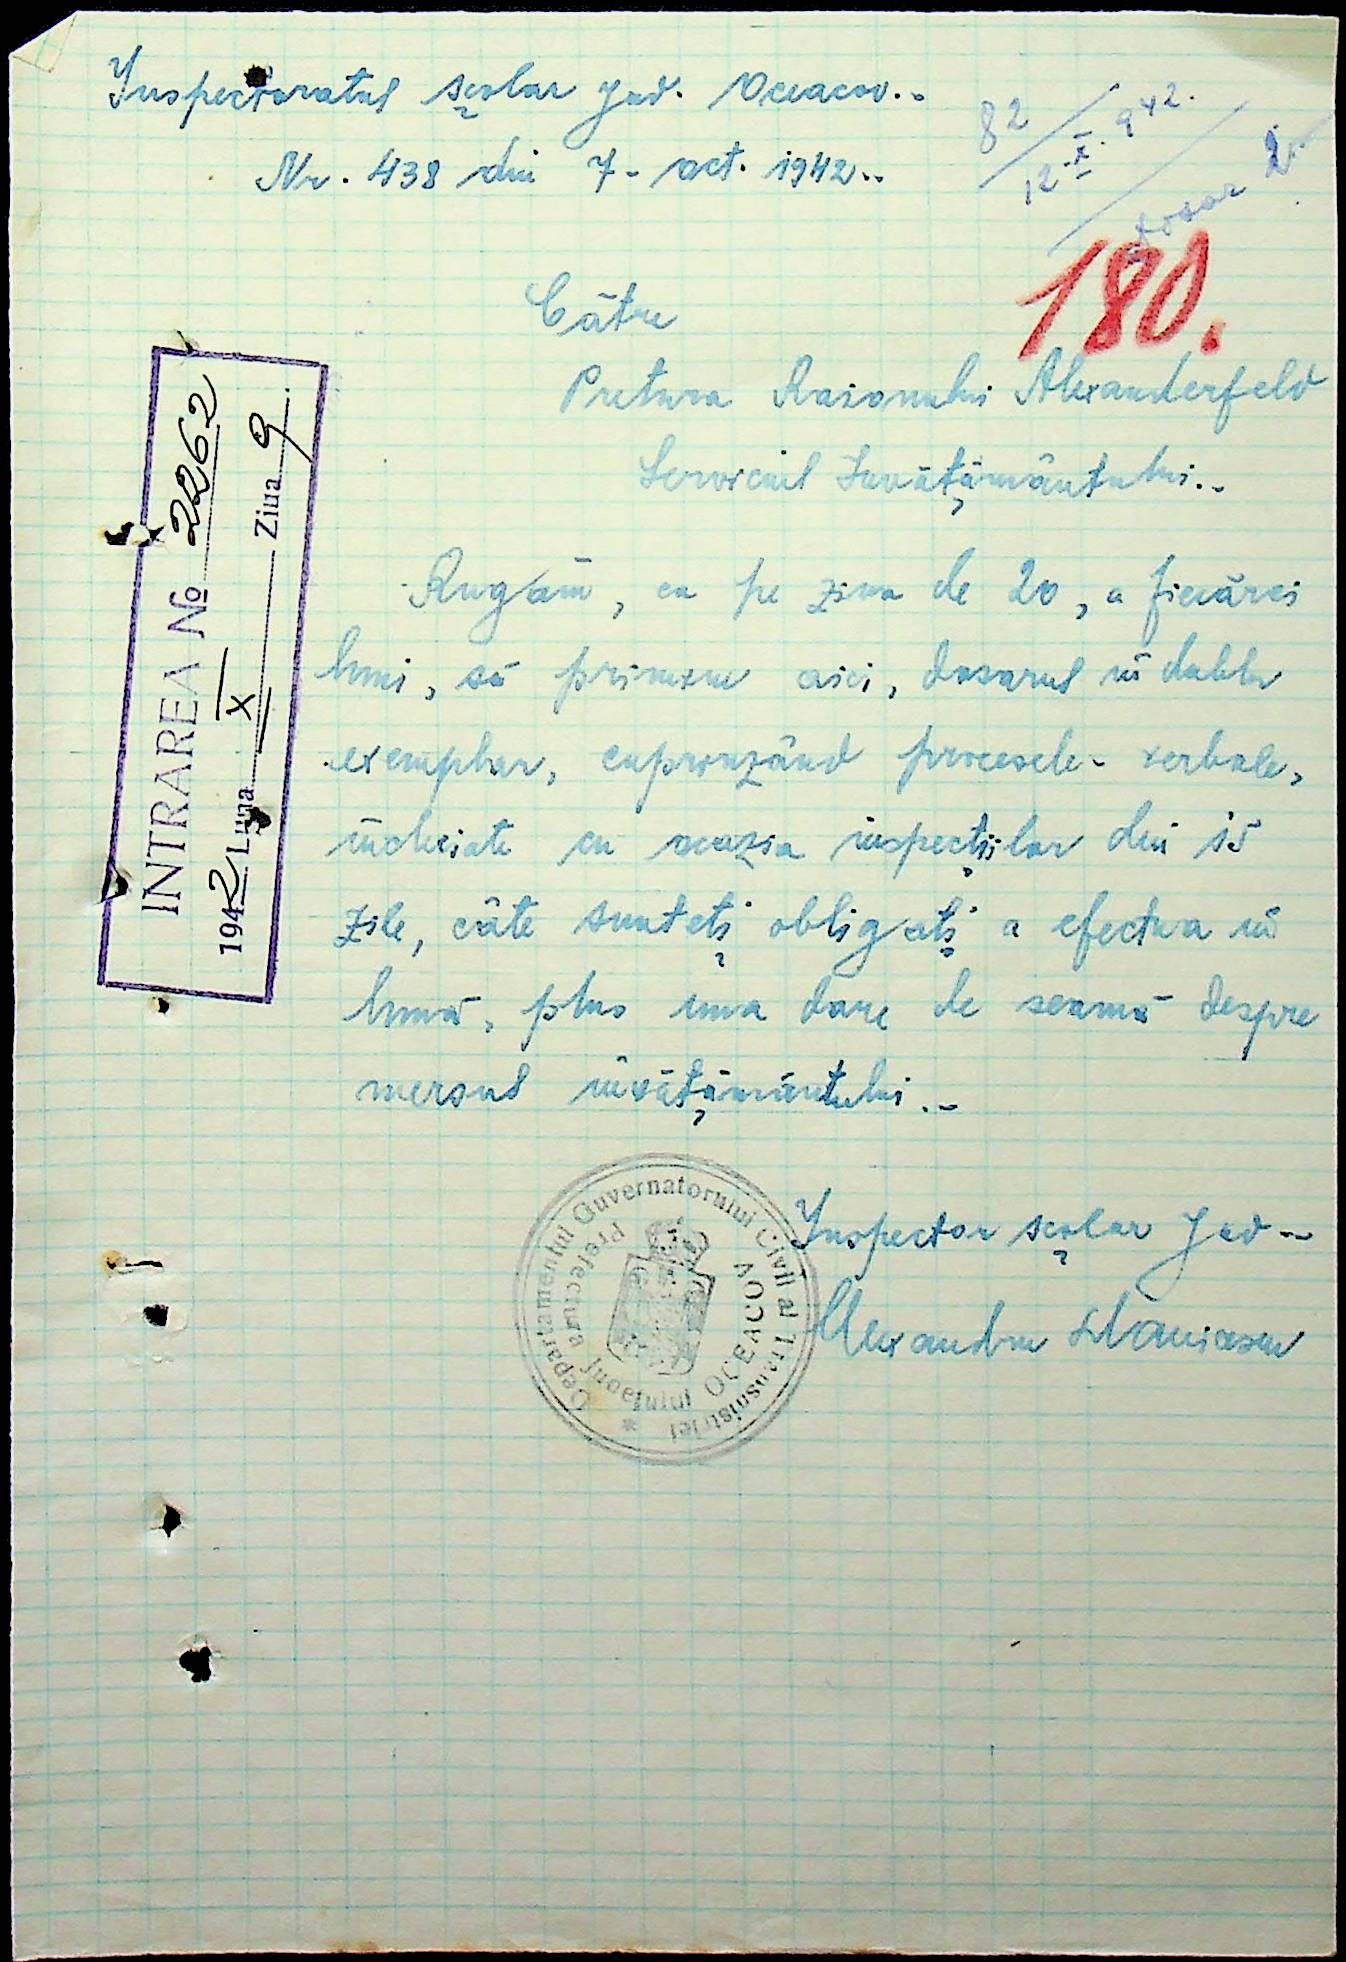 Inspectoratul școlar Jud. Oceacov..
Nr. 438 din 7- oct. 1942..
82
12.X.942.
dosar 2
180.
Către
Pretura Raionului Alexanderfeld
Serviciul Învățământului.-
INTRAREA № 2262
1942 Luna X Ziua 9
Rugăm, ca pe ziua de 20, a fiecărei
luni, să primim aici, dosarul în dublu
exemplar, cuprinzând procesele-verbale,
încheiate cu ocazia inspecțiilor din 15
zile, câte sunteți obligați a efectua în
lună, plus una dare de seamă despre
mersul învățământului.-
Inspector școlar Jud-
Alexandru Stanicescu
Departamentul Guvernatorului Civil al Transnistriei
Prefectura Județului OCEACOV